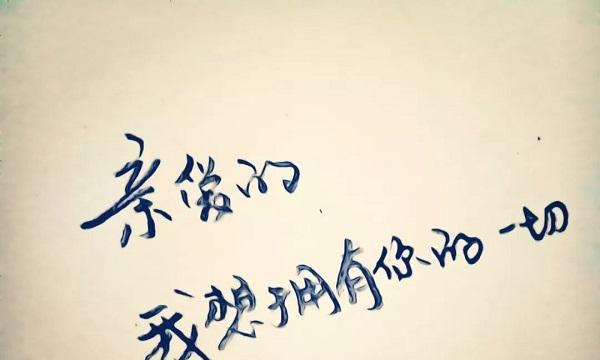 亲的
我想拥有你的一切